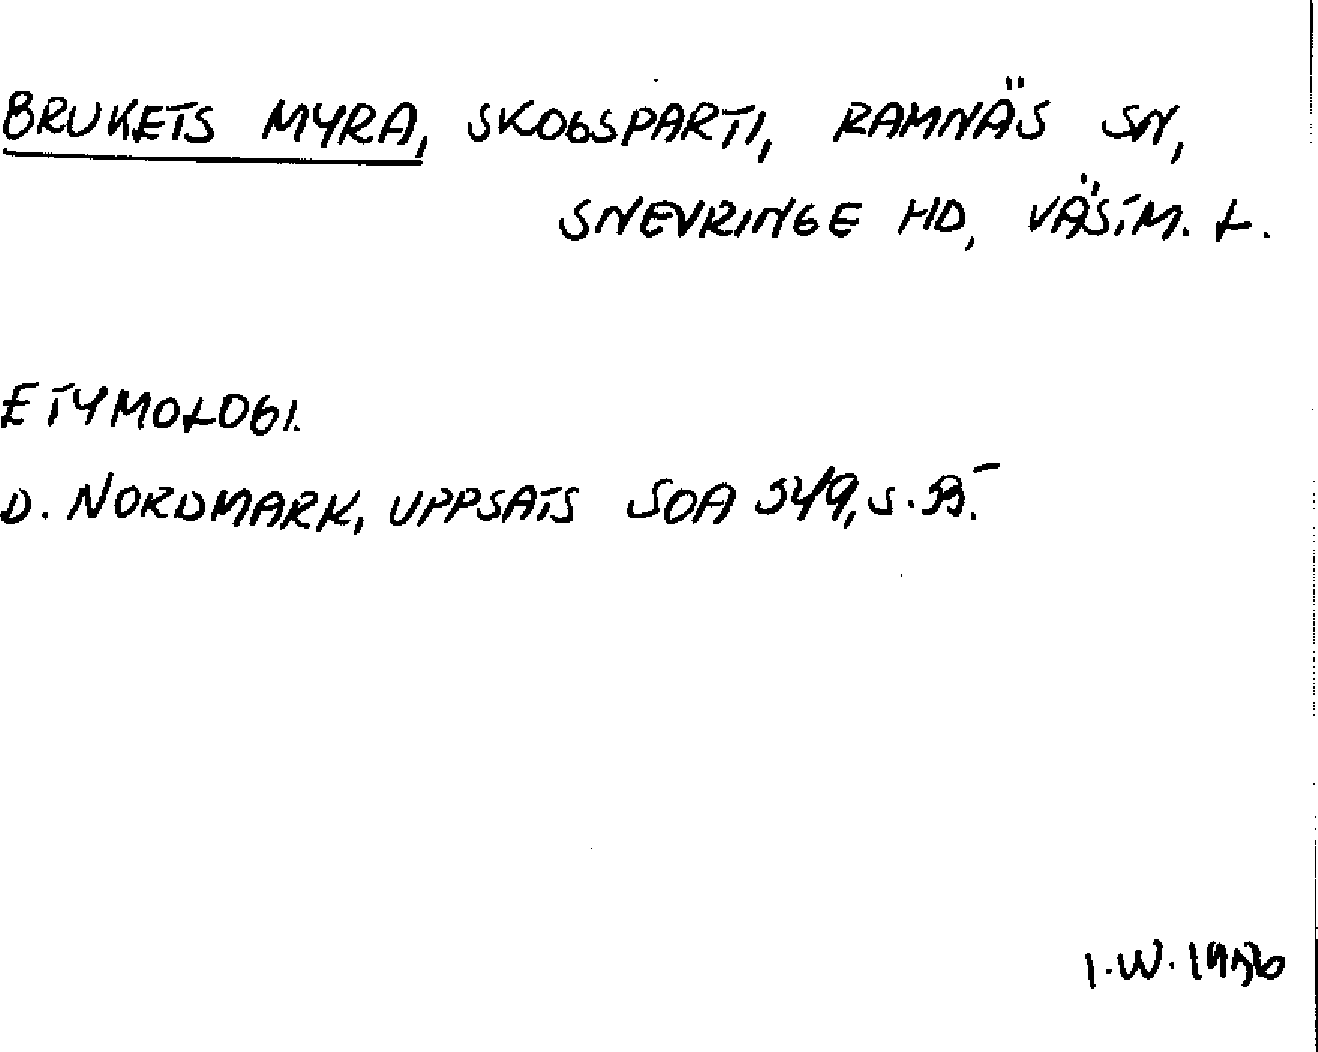 BRUKETS MYRA, SKOGSPARTI, RAMNÄS SN,
SNEVRINGE HD, VÄSTM. L.
ETYMOLOGI.
D. NORDMARK, UPPSATS SOA 549, S.
I.W. 1956